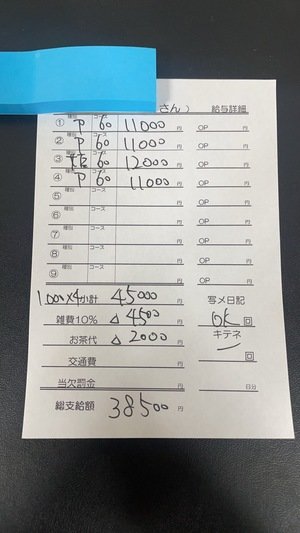 さん） 給与詳細
① 種別 P コース 60 11000 円 OP 円
② 種別 P コース 60 11000 円 OP 円
③ 種別 コース 60 12000 円 OP 円
④ 種別 P コース 60 11000 円 OP 円
⑤ 種別 コース 円 OP 円
⑥ 種別 コース 円 OP 円
⑦ 種別 コース 円 OP 円
⑧ 種別 コース 円 OP 円
⑨ 種別 コース 円 OP 円
1,000×4 小計 45000 円 写メ日記
雑費10% △ 4500 円 OK 回
お茶代 △ 2000 円 キテネ
交通費 円 回
当欠罰金 円 日分
総支給額 38500 円